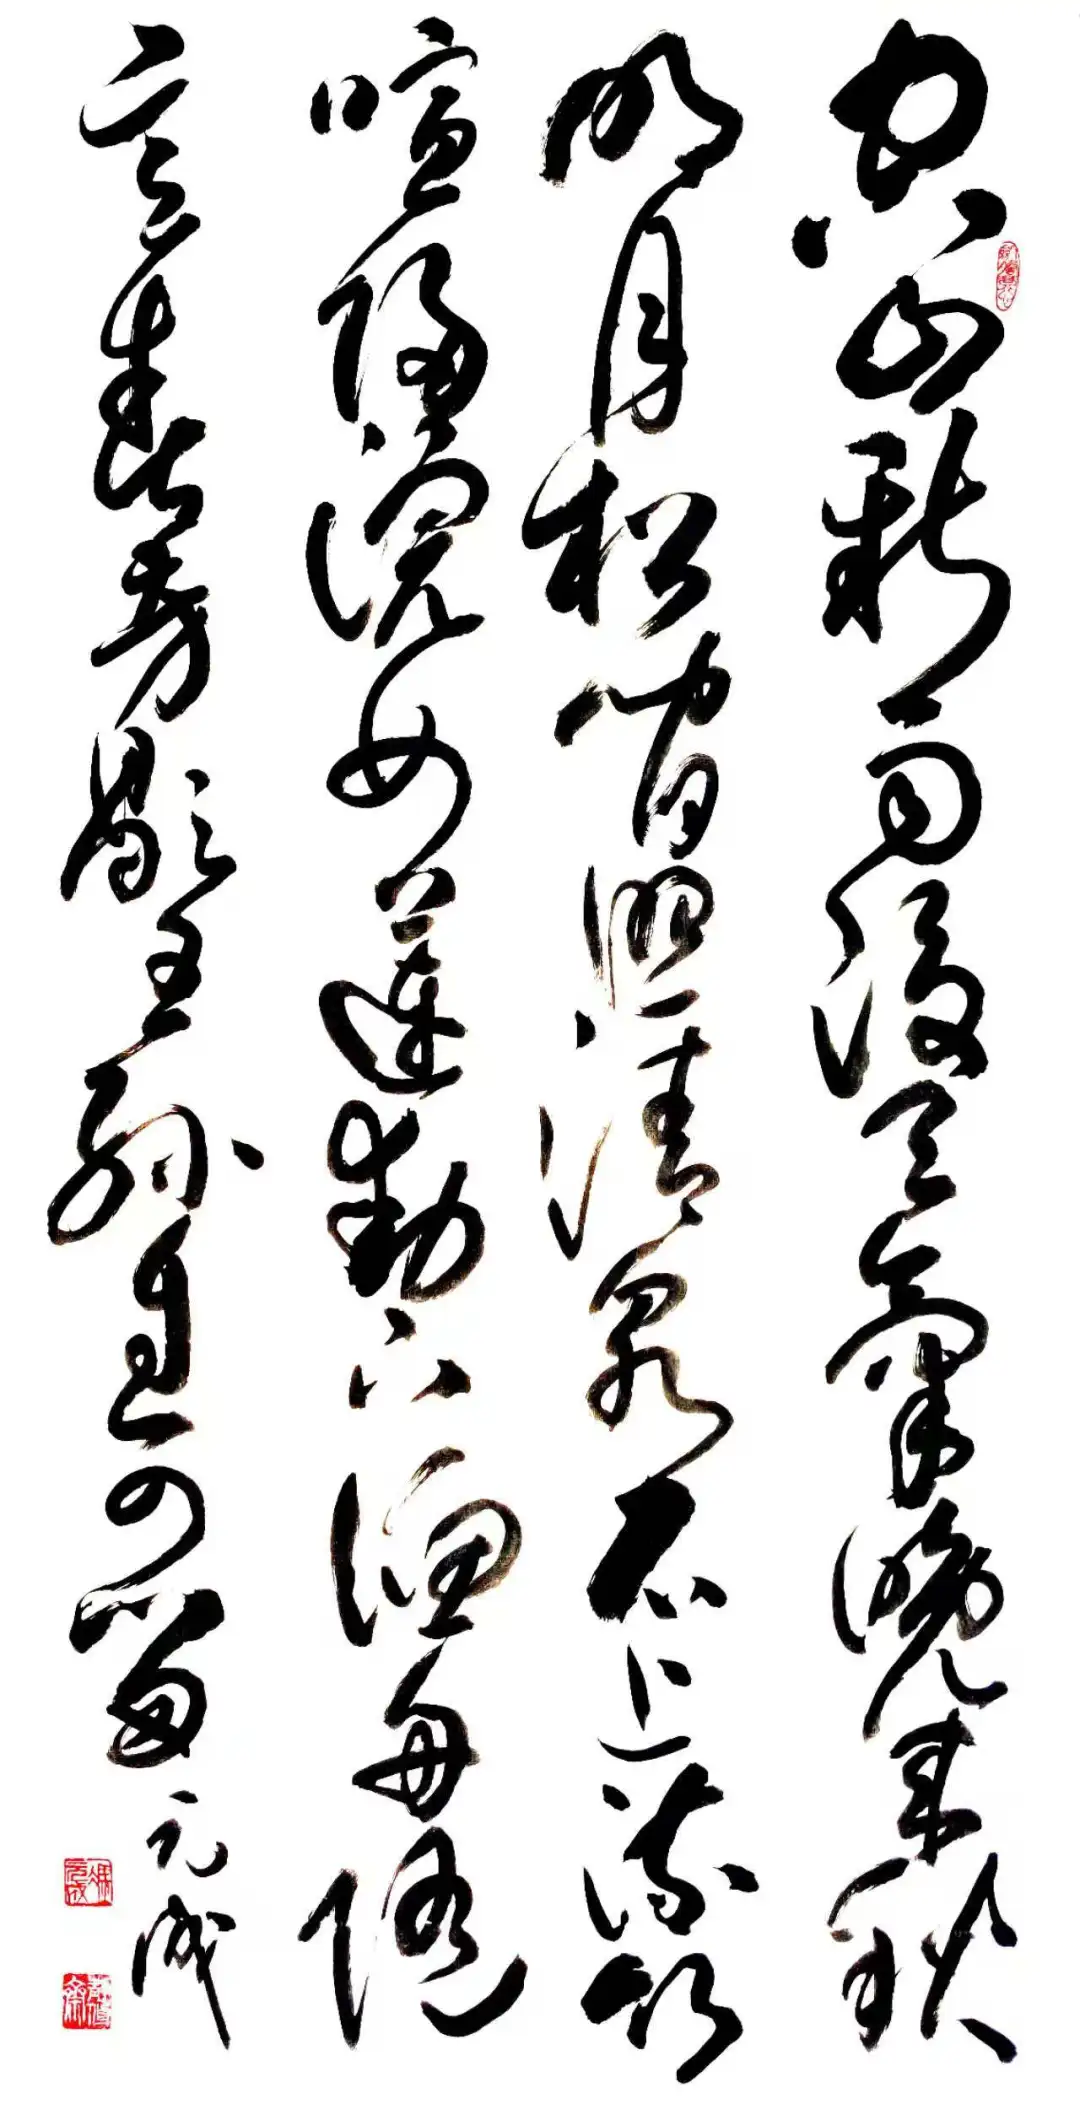 空山新雨後天氣晚来秋
明月松間照清泉石上流竹
喧歸浣女蓮動下漁舟随
意春芳歇王孫自可留
元成